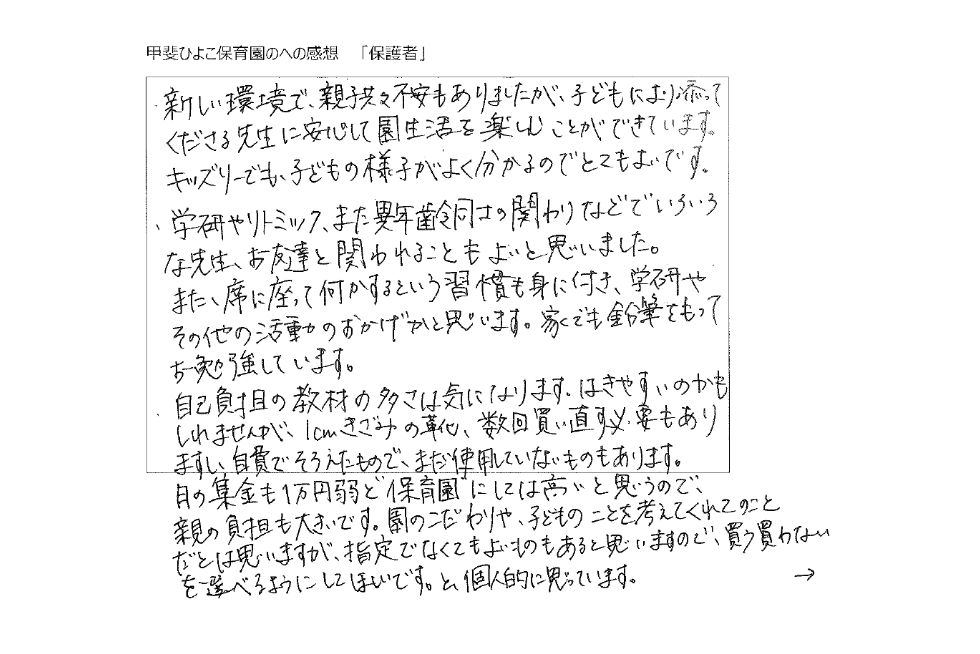 甲斐ひよこ保育園のへの感想 「保護者」
・新しい環境で、親子共々不安もありましたが、子どもにより添って
くださる先生に安心して園生活を楽しむことができています。
キッズリーでも、子どもの様子がよく分かるのでとてもよいです。
・学研やリトミック、また異年齢同士の関わりなどでいろいろ
な先生、お友達と関われることもよいと思いました。
また、席に座って何かするという習慣も身に付き、学研や
その他の活動のおかげかと思います。家でも鉛筆をもって
お勉強しています。
・自己負担の教材の多さは気になります。はきやすいのかも
しれませんが、1cmきざみの靴、数回買い直す必要もあり
ますし、自費でそろえたもので、まだ使用していないものもあります。
月の集金も1万円弱と"保育園"にしては高いと思うので、
親の負担も大きいです。園のこだわりや、子どものことを考えてくれてのこと
だとは思いますが、指定でなくてもよいものもあると思いますので、買う買わない
を選べるようにしてほしいです。と、個人的に思っています。 →